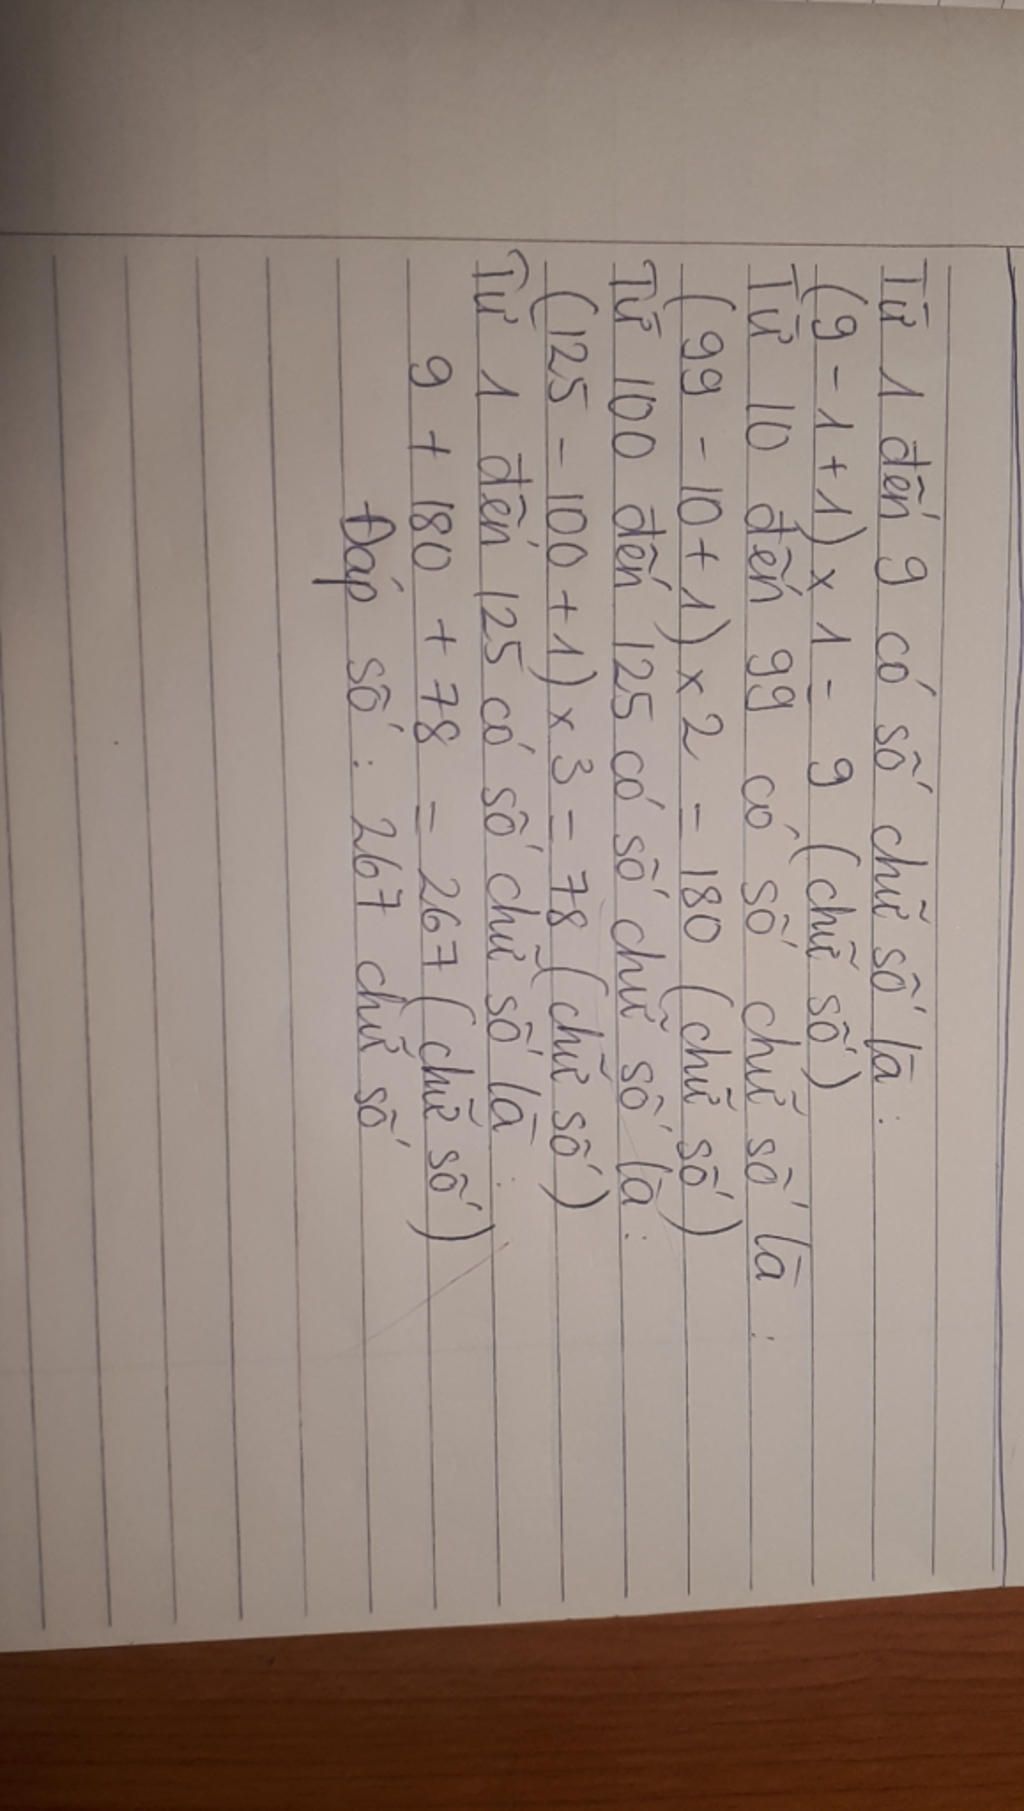 Từ 1 đến 9 có số chữ số là:
(9 - 1 + 1) × 1 = 9 (chữ số)
Từ 10 đến 99 có số chữ số là :
(99 - 10 + 1) × 2 = 180 (chữ số)
Từ 100 đến 125 có số chữ số là :
(125 - 100 + 1) × 3 = 78 (chữ số)
Từ 1 đến 125 có số chữ số là :
9 + 180 + 78 = 267 (chữ số)
Đáp số : 267 chữ số